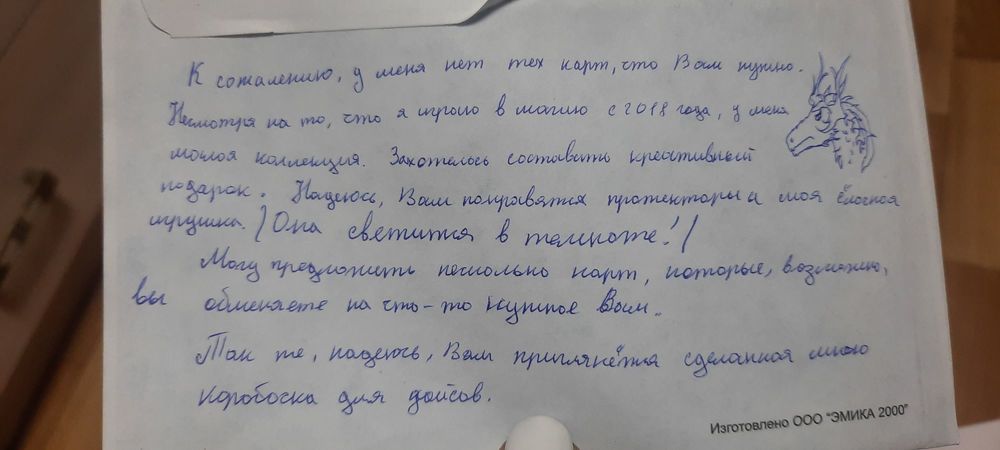 К сожалению, у меня нет тех карт, что Вам нужно.
Несмотря на то, что я играю в магию с 2018 года, у меня
малая коллекция. Захотелось составить креативный
подарок. Надеюсь, Вам понравятся протекторы и моя ёлочная
игрушка. /Она светится в темноте!/
Могу предложить несколько карт, которые, возможно,
вы обменяете на что-то нужное Вам.
Так же, надеюсь, Вам приглянётся сделанная мною
коробоска для дайсов.
Изготовлено ООО "ЭМИКА 2000"